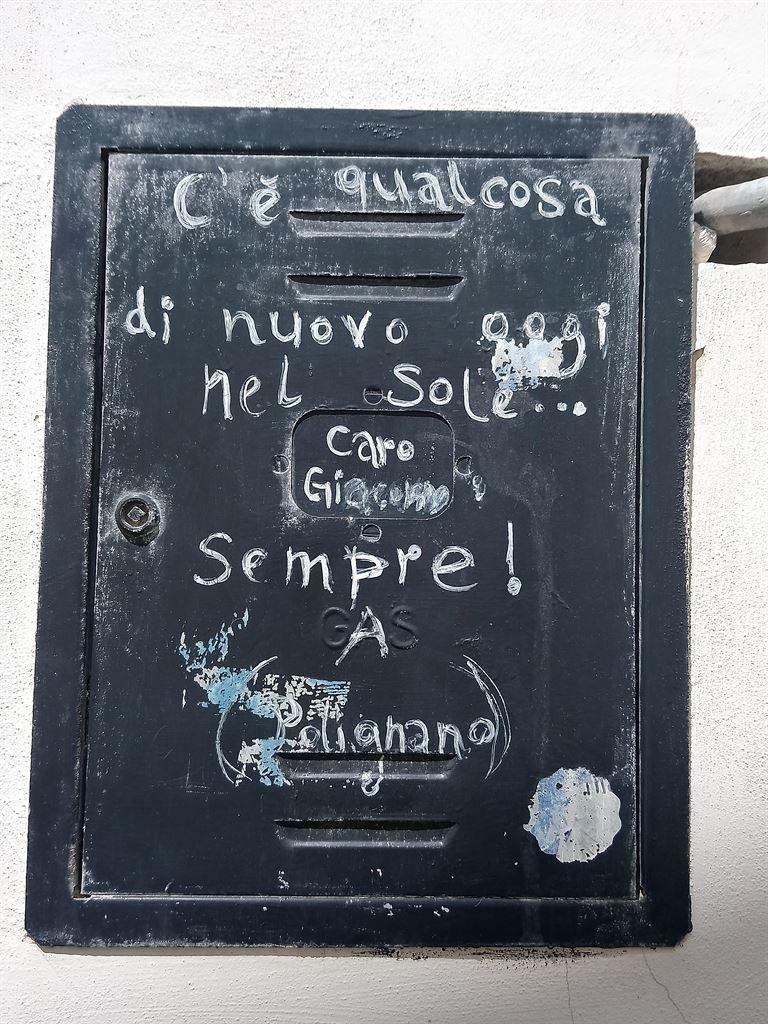 C'è qualcosa
di nuovo oggi
nel Sole...
Caro
Giacomo
Sempre!
GAS
A
(Polignano)